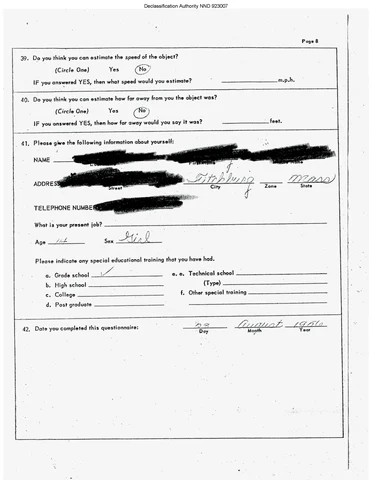 Declassification Authority NND 923007
Page 8
39. Do you think you can estimate the speed of the object?
(Circle One) Yes No
IF you answered YES, then what speed would you estimate? m.p.h.
40. Do you think you can estimate how far away from you the object was?
(Circle One) Yes No
IF you answered YES, then how far away would you say it was? feet.
41. Please give the following information about yourself:
NAME
ADDRESS Fitchburg Mass
Street City Zone State
TELEPHONE NUMBER
What is your present job?
Age Sex Girl
Please indicate any special educational training that you have had.
a. Grade school ✓ e. Technical school
b. High school (Type)
c. College f. Other special training
d. Post graduate
42. Date you completed this questionnaire: August
Day Month Year